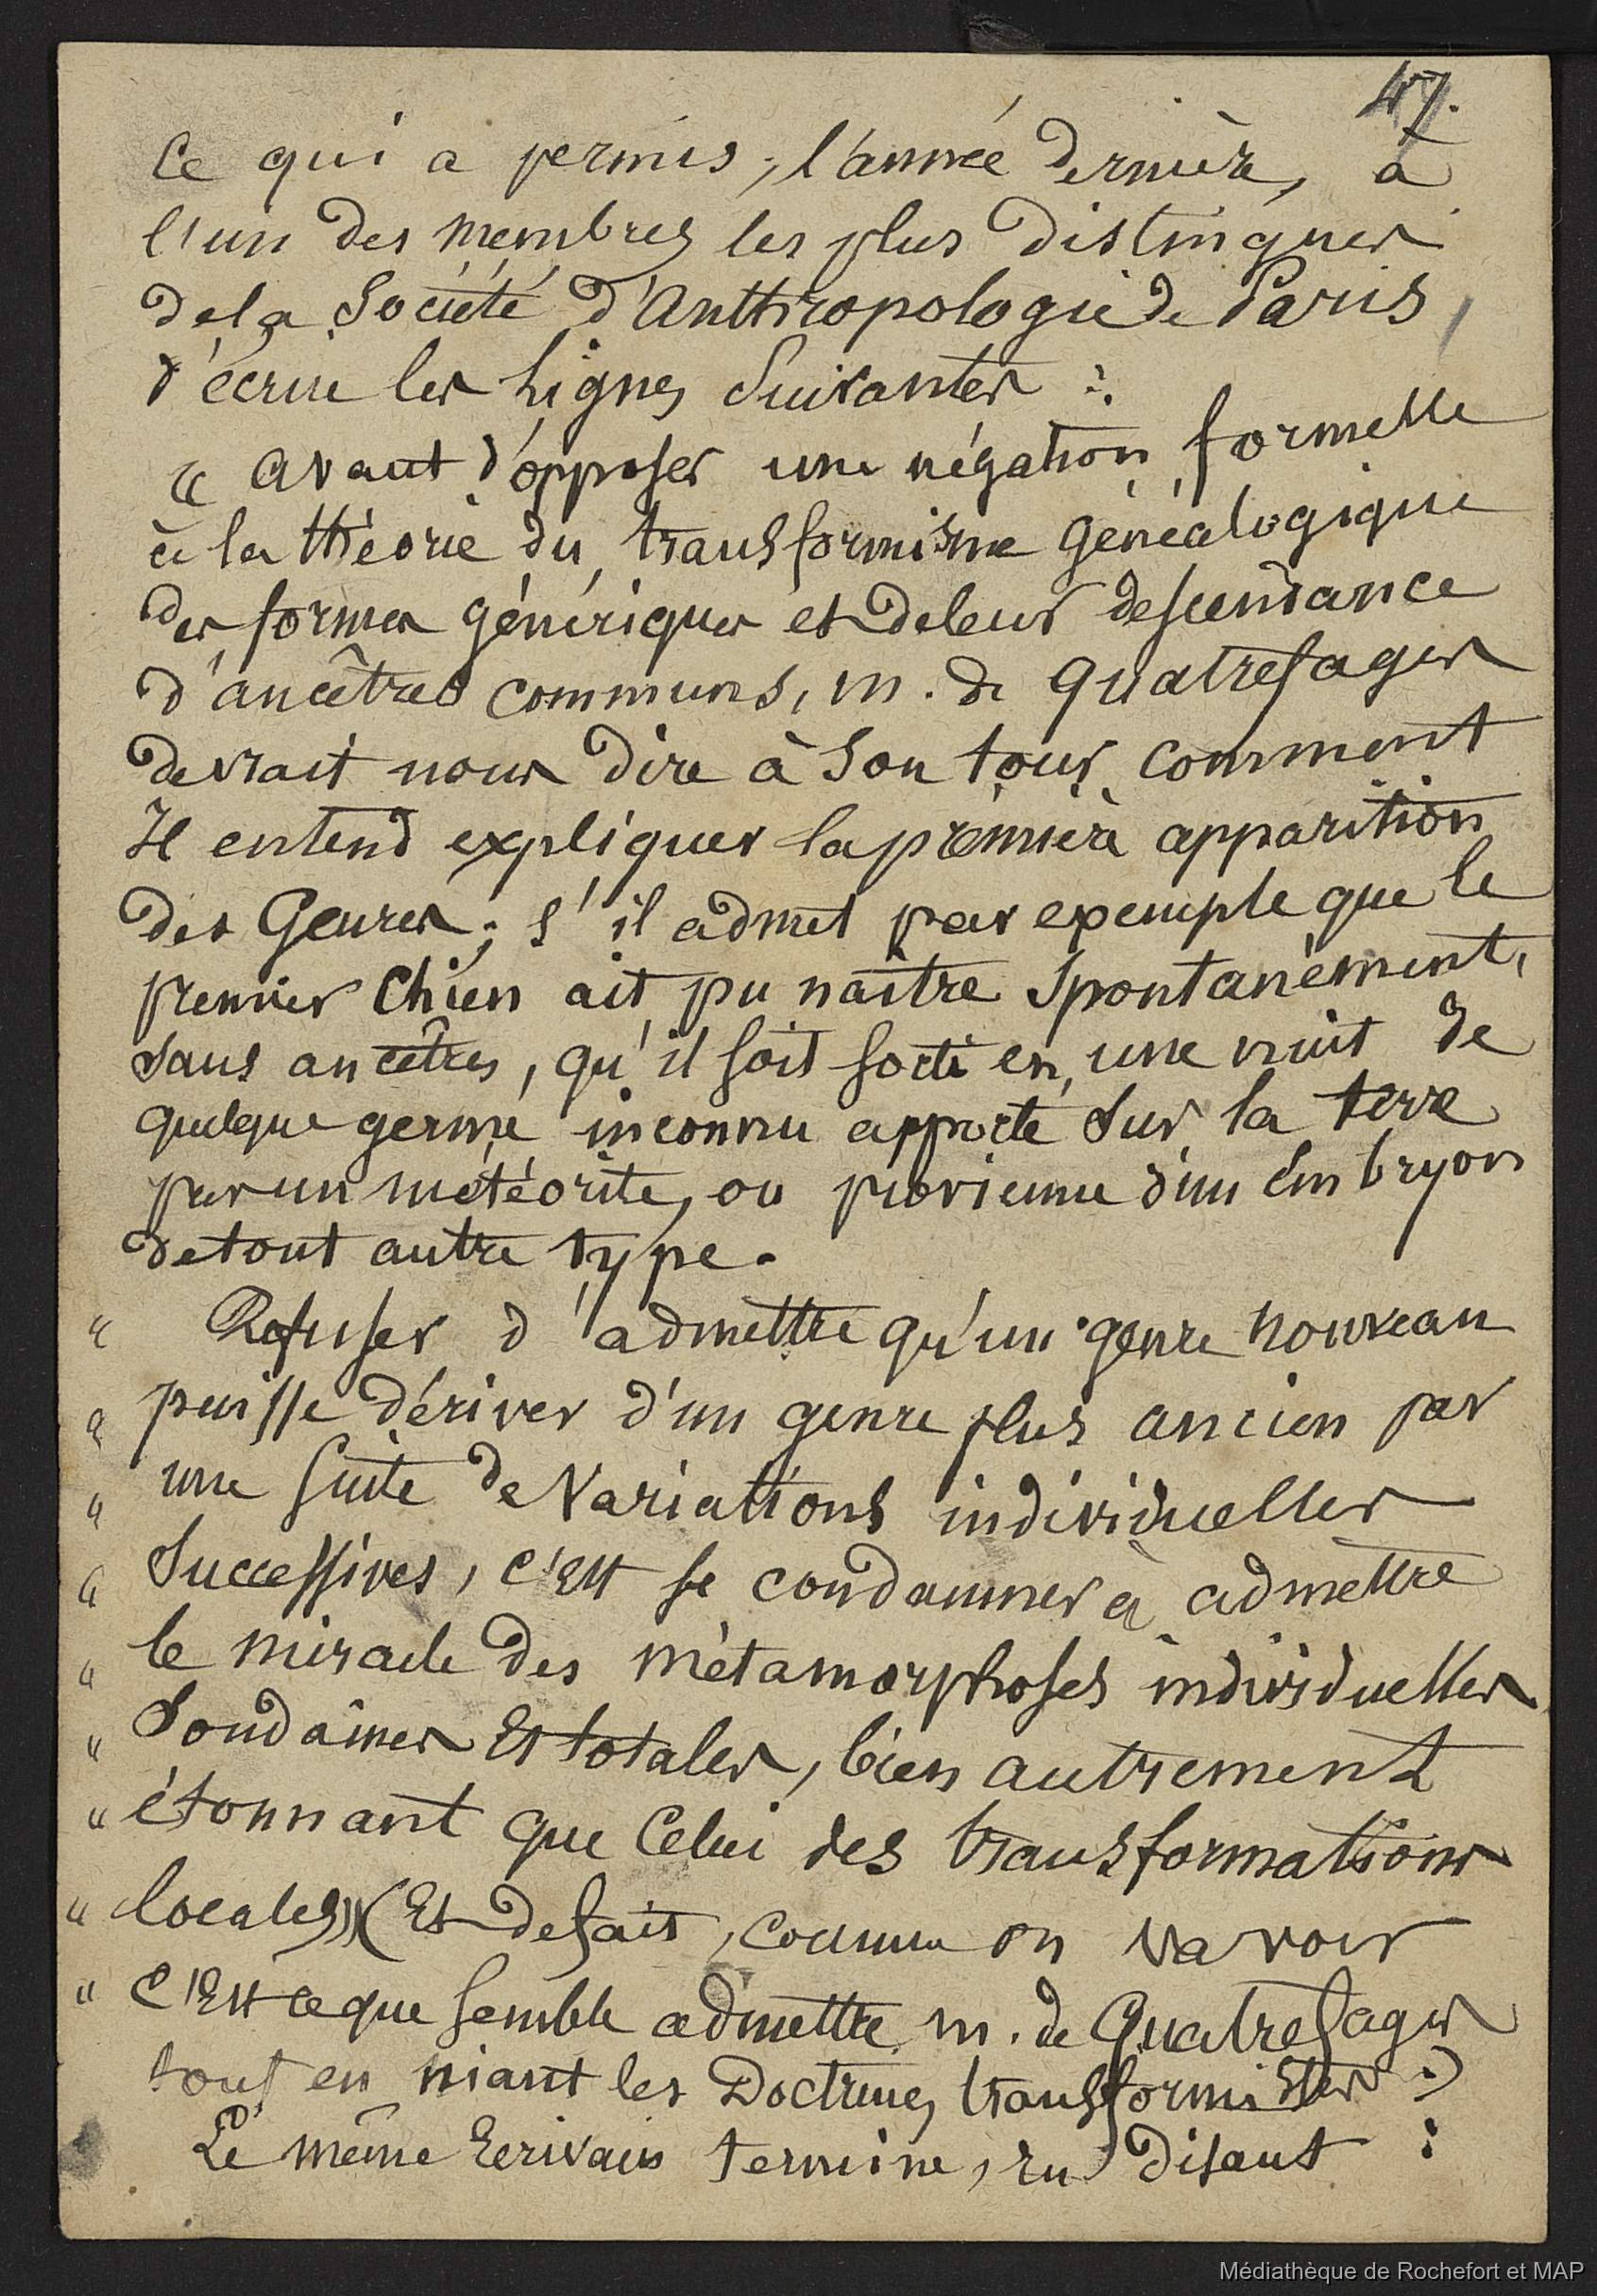 47.
Ce qui a permis, l'année dernière, à
l'un des membres les plus distingués
de la Société d'Anthropologie de Paris,
d'écrire les lignes suivantes :
« avant d'opposer une négation formelle
à la théorie du transformisme généalogique
des formes génériques et de leur descendance
d'ancêtres communs, m. de Quatrefages
devrait nous dire à son tour comment
Il entend expliquer la première apparition
des Genres ; s'il admet par exemple que le
premier Chien ait pu naître spontanément,
sans ancêtres, qu'il soit sorti en une nuit de
quelque germe inconnu apporté sur la terre
par un météorite, ou provienne d'un Embryon
de tout autre type.
« Refuser d'admettre qu'un genre nouveau
« puisse dériver d'un genre plus ancien par
« une suite de Variations individuelles
« Successives, c'Est se condamner à admettre
« le miracle des métamorphoses individuelles
« Soudaines Et totales, bien autrement
« étonnant que Celui des transformations
« locales» (Et de fait, comme on va voir
« C'Est ce que semble admettre m. de Quatrefages
tout en niant les Doctrines transformistes :)
Le même Ecrivain termine, en disant :
Médiathèque de Rochefort et MAP